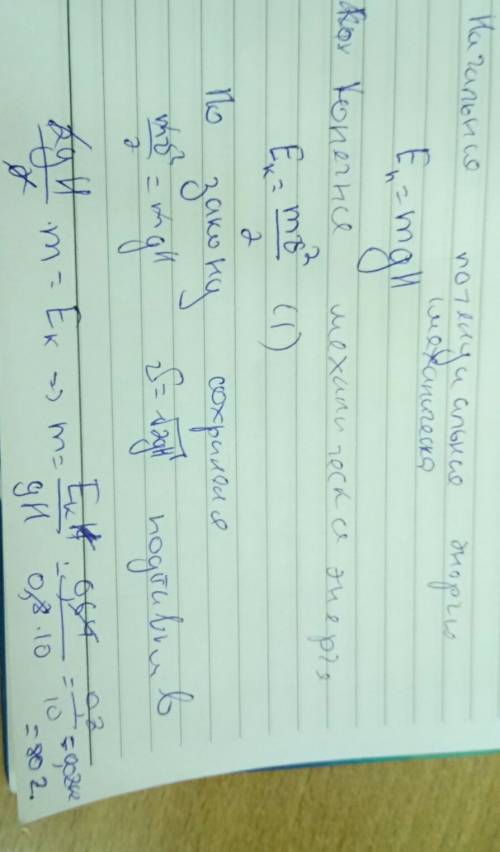 Начальная потенциальная энергия
(механическа
Eп = mgH
Конечная механическая энергия
Eк = mv²/2 (1)
По закону сохранения
mv²/2 = mgH v = √2gH подставим в
2gH/2 · m = Eк => m = Eк/gH = 0,64/0,8·10 = 0,8/10 = 0,08кг
= 80 г.